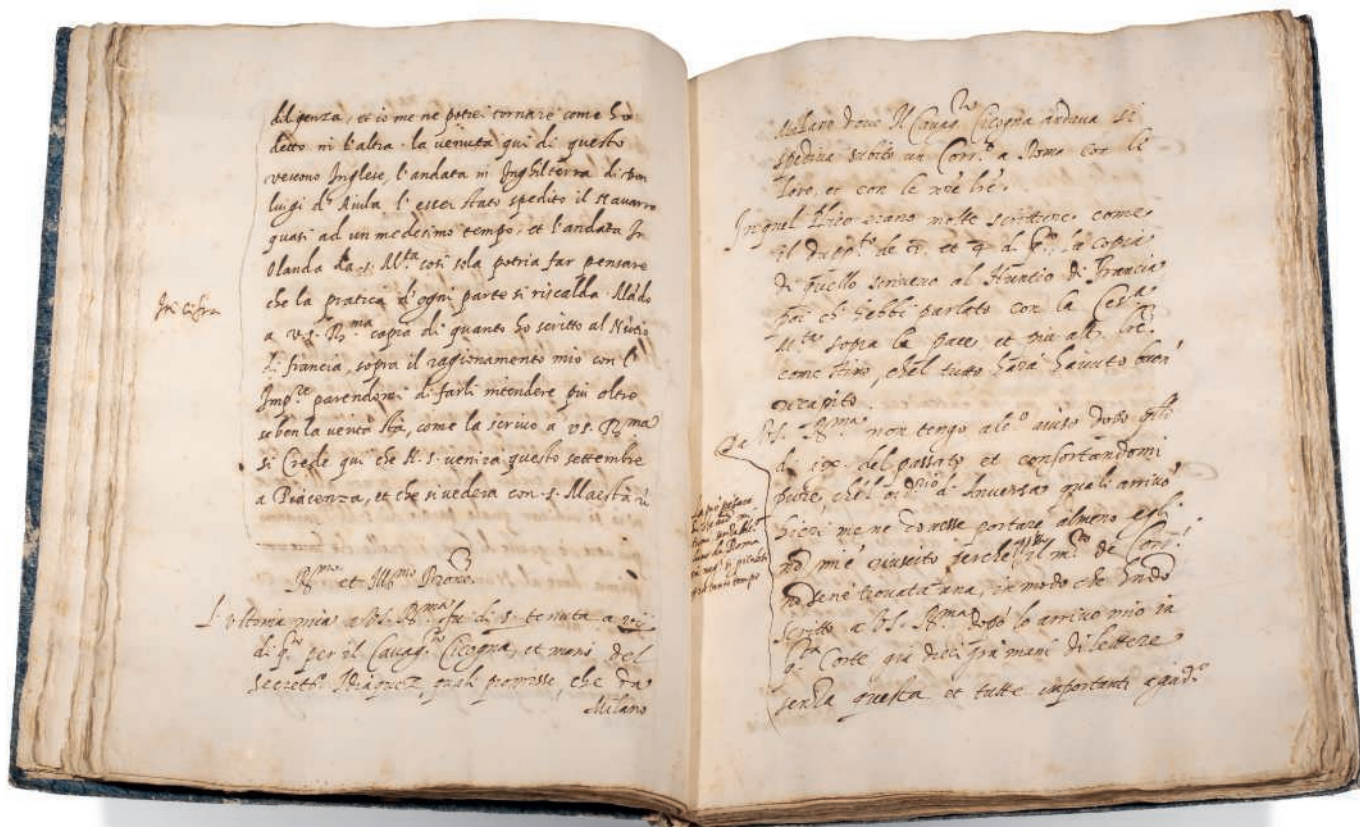 In cifra
diligenza, et io me ne potrei tornare come ho
detto ni l'altra. la venuta qui di questo
vescovo Inglese, l'andata in Inghilterra di Don
luigi d'Auila l'esser stato spedito il Nauarro
quasi ad un medesimo tempo, et l'andata In
Olanda da s. M.ta cosi sola potria far pensare
che la pratica di ogni parte si riscalda. Mãdo
a v.s. R.ma copia di quanto ho scritto al Nũtio
di francia, sopra il ragionamento mio con l'
Imp.re parendomi di farli intendere piu oltre
seben la verità stà, come la scrivo a vs. R.ma
si Crede qui che N. s. venira questo settembre
a Piacenza, et che si vedera con s. Maestà
R.mo et Ill.mo
L'ultima mia a V.S. R.ma fu di tenuta a vij
di q.o per il Cauag.re Cicogna, et mani del
secrett.o Idiaquez, quali promisse, che da
Milano
Milano doue Il Cauag.re Cicogna andaua si
spediua subito un Corr.o a Roma con le
loro, et con le nr̃e lr̃e.
In quel erano molte scritture come
il et di la copia
di quello scriveuo al Nuntio di Francia
poi ch'hebbi parlato con la Ces.a
M.ta sopra la pace et piu altr. lr̃e.
come stimo, chel tutto harà hauuto buon
ricapito.
Da V.S. R.ma non tengo alc.o auiso dopo
di del passato et confortandomi
pure, chel ord.rio d'Anuersa quali arriuò
hieri me ne douesse portare almeno
nõ mi è riuscito perche il m.ro de Corr.i
nõ se ne trouata una, in modo che
scritto a V.S. R.ma dopò lo arriuo mio in
q.ta Corte già dieci mani di lettere
senza questa et tutte importanti
da Roma
tempo